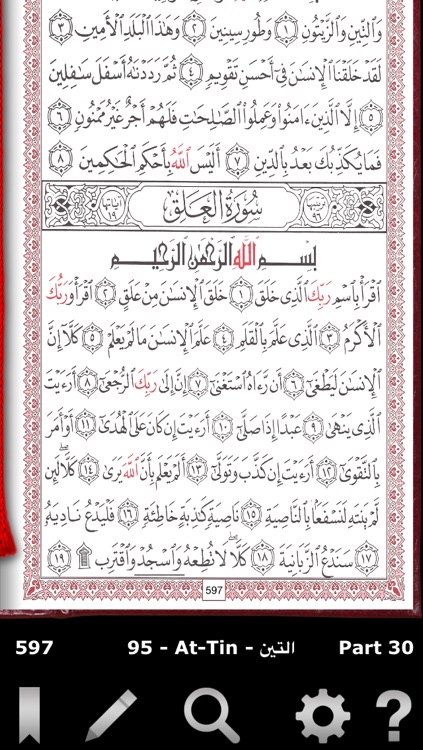 وَٱلتِّينِ وَٱلزَّيْتُونِ ١ وَطُورِ سِينِينَ ٢ وَهَٰذَا ٱلْبَلَدِ ٱلْأَمِينِ ٣
لَقَدْ خَلَقْنَا ٱلْإِنسَٰنَ فِىٓ أَحْسَنِ تَقْوِيمٍ ٤ ثُمَّ رَدَدْنَٰهُ أَسْفَلَ سَٰفِلِينَ
٥ إِلَّا ٱلَّذِينَ ءَامَنُوا۟ وَعَمِلُوا۟ ٱلصَّٰلِحَٰتِ فَلَهُمْ أَجْرٌ غَيْرُ مَمْنُونٍ ٦
فَمَا يُكَذِّبُكَ بَعْدُ بِٱلدِّينِ ٧ أَلَيْسَ ٱللَّهُ بِأَحْكَمِ ٱلْحَٰكِمِينَ ٨
ترتيبها ٩٦ سُورَةُ الْعَلَقِ آياتها ١٩
بِسْمِ ٱللَّهِ ٱلرَّحْمَٰنِ ٱلرَّحِيمِ
ٱقْرَأْ بِٱسْمِ رَبِّكَ ٱلَّذِى خَلَقَ ١ خَلَقَ ٱلْإِنسَٰنَ مِنْ عَلَقٍ ٢ ٱقْرَأْ وَرَبُّكَ
ٱلْأَكْرَمُ ٣ ٱلَّذِى عَلَّمَ بِٱلْقَلَمِ ٤ عَلَّمَ ٱلْإِنسَٰنَ مَا لَمْ يَعْلَمْ ٥ كَلَّآ إِنَّ
ٱلْإِنسَٰنَ لَيَطْغَىٰٓ ٦ أَن رَّءَاهُ ٱسْتَغْنَىٰٓ ٧ إِنَّ إِلَىٰ رَبِّكَ ٱلرُّجْعَىٰٓ ٨ أَرَءَيْتَ
ٱلَّذِى يَنْهَىٰ ٩ عَبْدًا إِذَا صَلَّىٰٓ ١٠ أَرَءَيْتَ إِن كَانَ عَلَى ٱلْهُدَىٰٓ ١١ أَوْ أَمَرَ
بِٱلتَّقْوَىٰٓ ١٢ أَرَءَيْتَ إِن كَذَّبَ وَتَوَلَّىٰٓ ١٣ أَلَمْ يَعْلَم بِأَنَّ ٱللَّهَ يَرَىٰ ١٤ كَلَّا لَئِن
لَّمْ يَنتَهِ لَنَسْفَعًۢا بِٱلنَّاصِيَةِ ١٥ نَاصِيَةٍ كَٰذِبَةٍ خَاطِئَةٍ ١٦ فَلْيَدْعُ نَادِيَهُۥ
١٧ سَنَدْعُ ٱلزَّبَانِيَةَ ١٨ كَلَّا لَا تُطِعْهُ وَٱسْجُدْ وَٱقْتَرِب ۩ ١٩
597
597 95 - At-Tin - التين Part 30
?